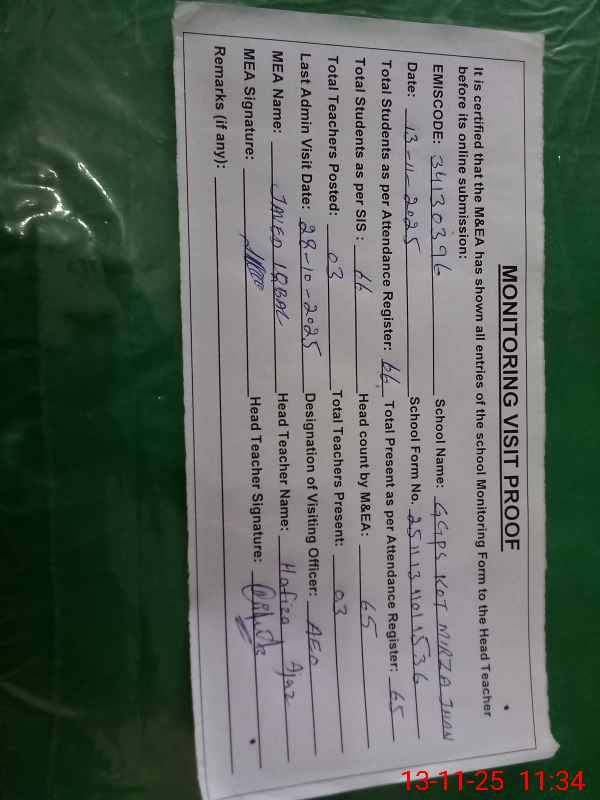 MONITORING VISIT PROOF
It is certified that the M&EA has shown all entries of the school Monitoring Form to the Head Teacher
before its online submission:
EMISCODE: 34130396 School Name: GGPS KOT MIRZA JUAN
Date: 13-11-2025 School Form No. 2511134101536
Total Students as per Attendance Register: 66 Total Present as per Attendance Register: 65
Total Students as per SIS : 66 Head count by M&EA: 65
Total Teachers Posted: 03 Total Teachers Present: 03
Last Admin Visit Date: 28-10-2025 Designation of Visiting Officer: AEO
MEA Name: JAVED IQBAL Head Teacher Name: Hafiza Ajaz
MEA Signature: Head Teacher Signature:
Remarks (if any):
13-11-25 11:34